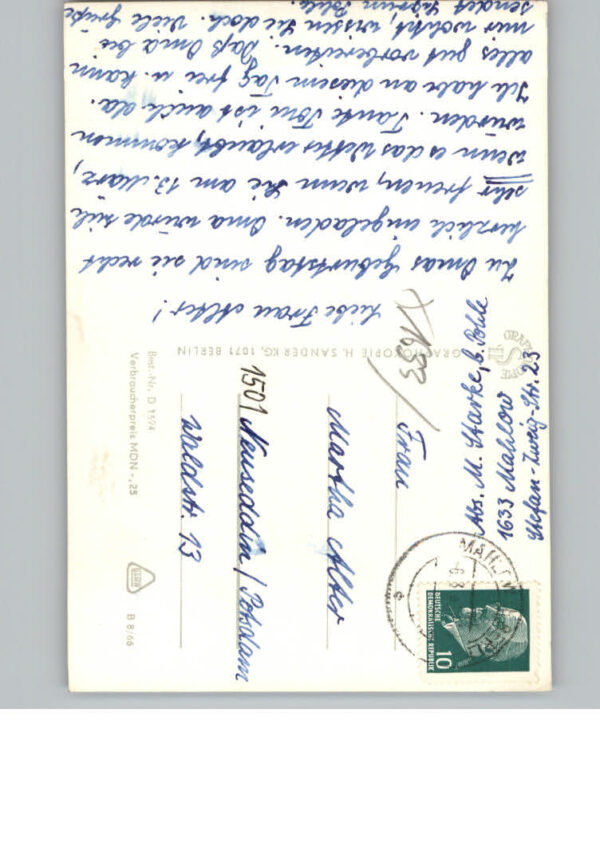 Liebe Frau Alter!
Zu Omas Geburtstag sind sie recht
herzlich eingeladen. Oma würde sich
sehr freuen, wenn Sie am 13. März,
wenn es das Wetter erlaubt, kommen
würden. Tante Toni ist auch da.
Ich habe an diesem Tag frei u. kann
alles gut vorbereiten. Daß Oma bei
mir wohnt, wissen Sie doch. Viele Grüße
sendet Sigrun Pohle.
Abs. M. Starke, b. Pohle
1633 Mahlow
Stefan-Zweig-Str. 23
1633
Frau
Martha Alter
1501 Neuseddin / Potsdam
Waldstr. 13
GRAPHOKOPIE H. SANDER KG, 1071 BERLIN
Best.-Nr. D 1394
Verbraucherpreis MDN -,25
B 8/66
DEUTSCHE
DEMOKRATISCHE REPUBLIK
10